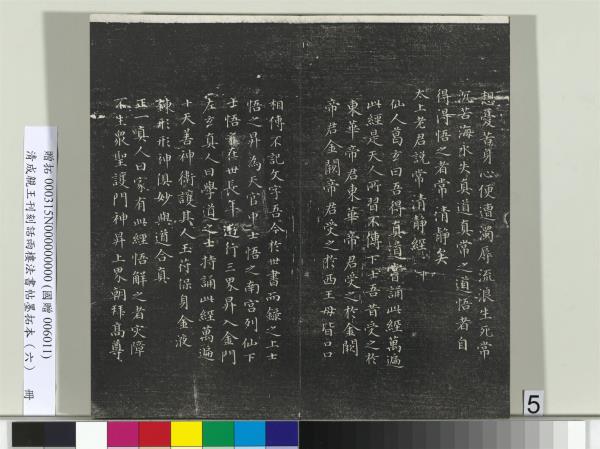 想憂苦身心便遭濁辱流浪生死常
沉苦海永失真道真常之道悟者自
得得悟之者常清靜矣
太上老君說常清靜經
仙人葛玄曰吾得真道嘗誦此經萬遍
此經是天人所習不傳下士吾昔受之於
東華帝君東華帝君受之於金闕
帝君金闕帝君受之於西王母皆口口
相傳不記文字吾今於世書而錄之上士
悟之昇為天官中士悟之南宮列仙下
士悟之在世長年遊行三界昇入金門
左玄真人曰學道之士持誦此經萬遍
十天善神衛護其人玉符保身金液
鍊形形神俱妙與道合真
正一真人曰家有此經悟解之者灾障
不生眾聖護門神昇上界朝拜高尊
贈拓 000315N000000000 (國贈 006011)
清成親王刊刻話雨樓法書帖墨拓本（六） 冊
5